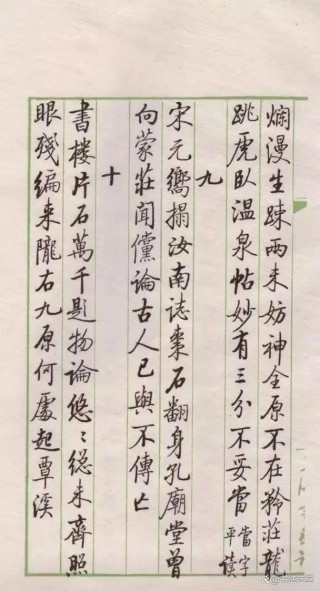 爛漫生疎兩未妨神全原不在矜莊龍
跳虎臥溫泉帖妙有三分不妥當
當字
平讀
九
宋元嚮搨汝南誌棗石翻身孔廟堂曾
向蒙莊聞儻論古人已與不傳亡
十
書樓片石萬千題物論悠〻総未齊照
眼殘編來隴右九原何處起覃溪